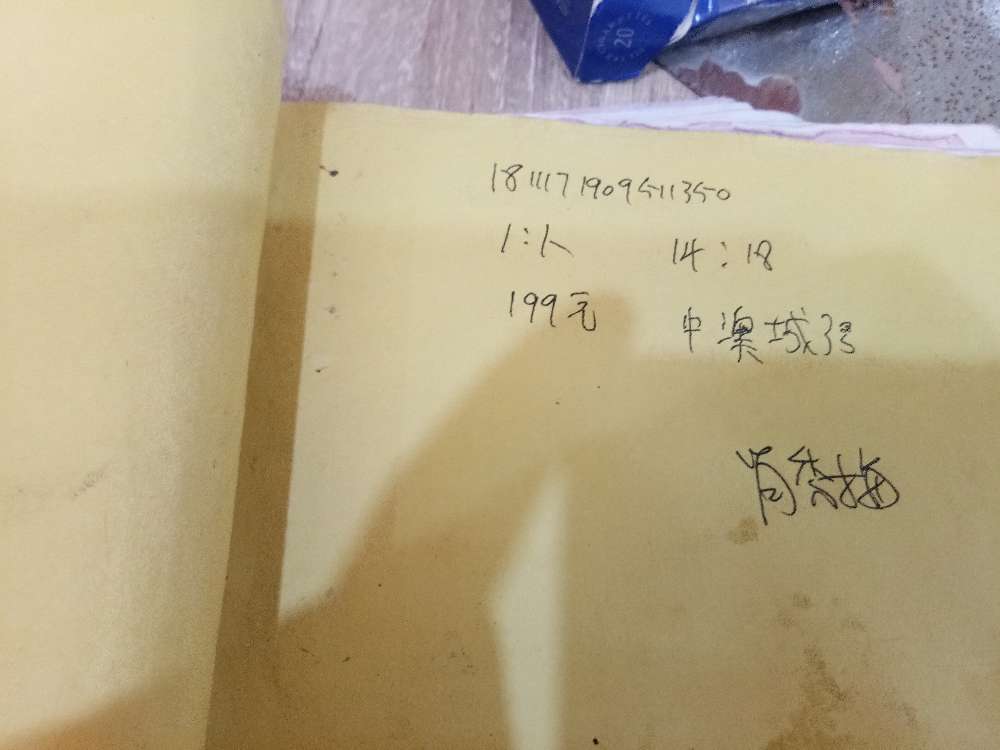 20
181117190951350
1:人 14:18
199元 中澳城33
肖秀梅